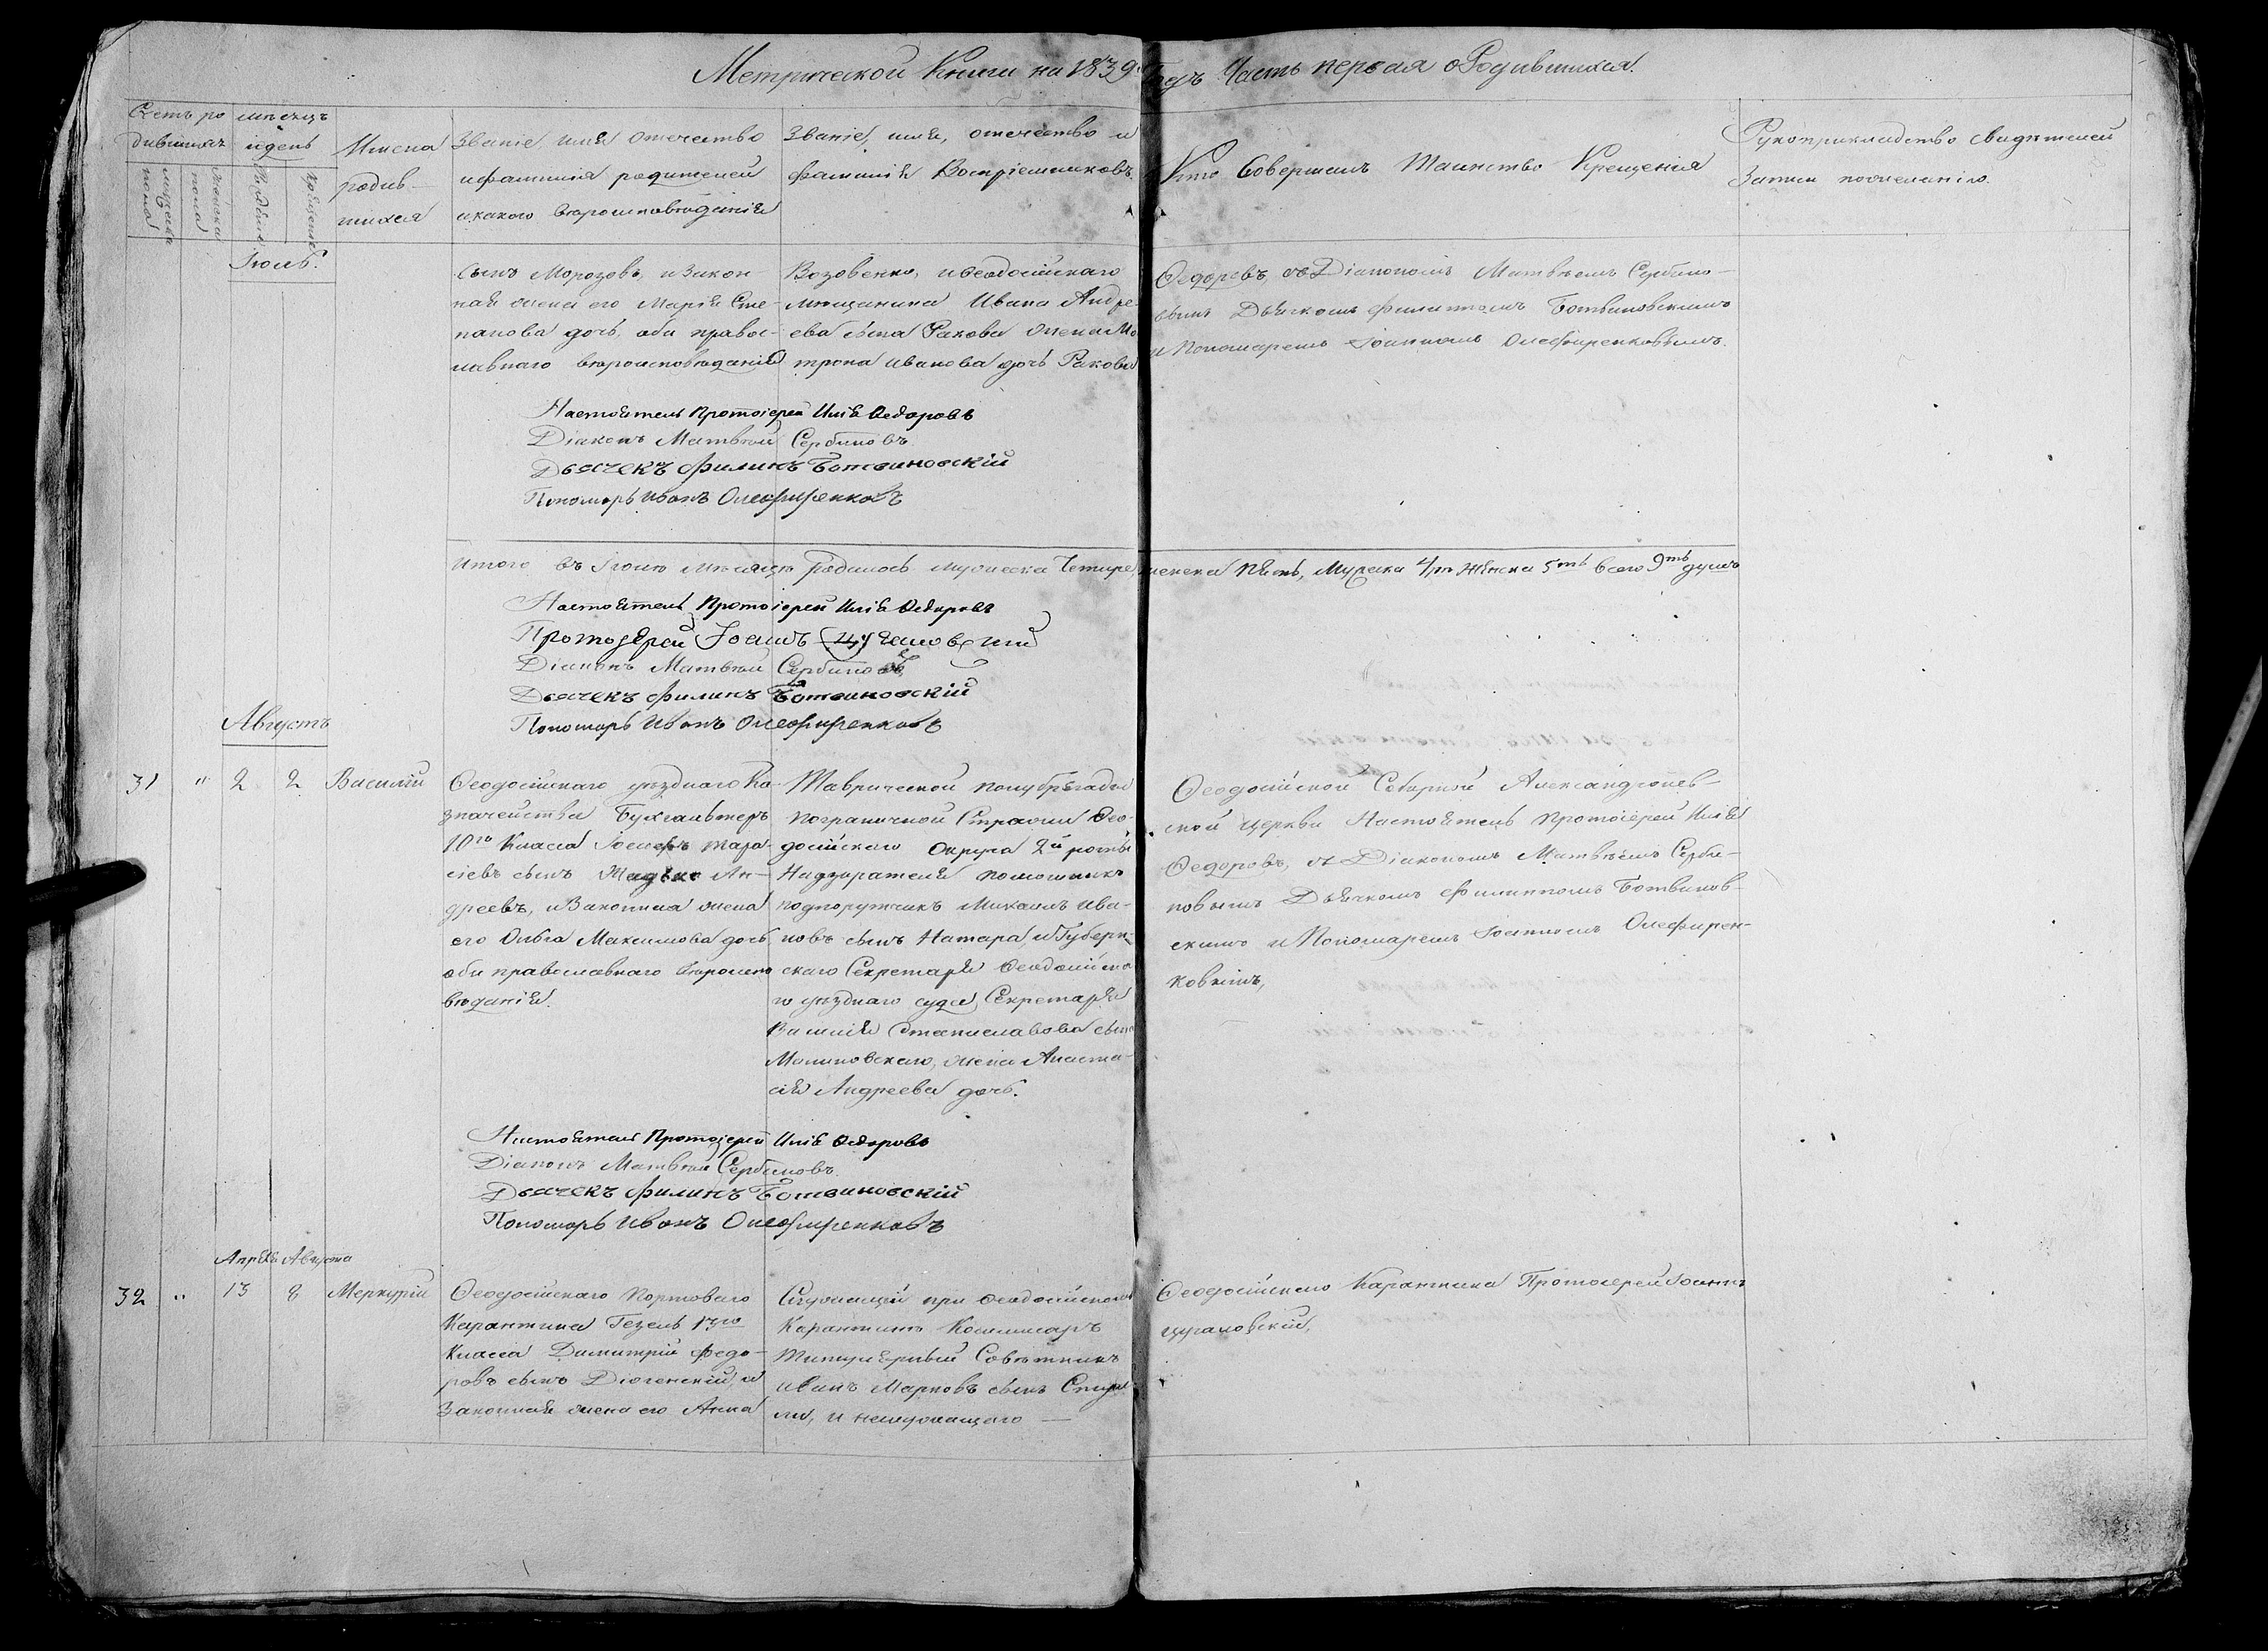 Метрической Книги на 1839й Годъ Часть первая о Родившихся.
Счетъ ро
дившихъ
мужеска
пола
женска
пола
мѣсяцъ
и день
Рожденія
Крещенія
Имена
родив-
шихся
Званіе, имя отечество
и фамилія родителей
и какого вѣроисповѣданія
Званіе, имя, отечество и
фамилія Воспріемниковъ.
Кто Совершалъ Таинство Крещенія
Рукоприкладство свидѣтелей
Записи по желанію.
Іюль.
сынъ Морозовъ, и Закон
ная жена его Марія Сте-
панова дочь, оба правос-
лавнаго вѣроисповѣданія
и Ѳеодосійскаго
мѣщанина Ивана Андре-
ева сына Ракова жена Ма
трона Иванова дочь Ракова
Ѳедоровъ, съ Діакономъ Матвѣемъ Сербино-
вымъ Дьячкомъ Филиппомъ Ботвиновскимъ
и Пономаремъ Іоанномъ Олефиренковымъ.
Настоятель Протоіерей Илія Ѳедоровъ
Діаконъ Матвѣй Сербиновъ
Дьячекъ Филипъ Ботвиновскій
Пономарь Иванъ Олефиренковъ
Итого въ Іюлѣ мѣсяцѣ родилось мужеска Четыре, женска пять, Мужска 4/ре Женска 5ть всего 9ть душъ
Настоятель Протоіерей Илія Ѳедоровъ
Діаконъ Матвѣй Сербиновъ
Дьячекъ Филипъ Ботвиновскій
Пономарь Иванъ Олефиренковъ
Августъ
31 " 2 2 Василій
Ѳеодосійскаго уѣзднаго Ка-
значейства Бухгалтеръ
10го Класса Іосифъ Тара-
сіевъ сынъ Ан-
дреевъ, и Законная жена
его Ольга Максимова дочь
оба православнаго вѣроиспо
вѣданія.
Таврической полубригады
пограничной Стражи Ѳео-
досійскаго Округа 2й роты
Надзирателя помошникъ
подпоручикъ Михаилъ Ива-
новъ сынъ Натара, и Губерн-
скаго Секретаря Ѳеодосійска
го уѣзднаго суда, Секретаря
Василія Станиславова сына
Малиновскаго, жена Анаста-
сія Андреева дочь.
Ѳеодосійской Соборной Александроне в-
ской церкви Настоятель Протоіерей Илія
Ѳедоровъ, съ Діакономъ Матвѣемъ Серби-
новымъ Дьячкомъ Филиппомъ Ботвинов-
скимъ и Пономаремъ Іоанномъ Олефирен-
ковымъ,
Настоятель Протоіерей Илія Ѳедоровъ
Діаконъ Матвѣй Сербиновъ.
Дьячекъ Филипъ Ботвиновскій
Пономарь Иванъ Олефиренковъ
Апрѣля Августа
32 " 13 8 Меркурій
Ѳеодосійскаго Портоваго
Карантина Гезель 1го
Класса Димитрій Ѳедо-
ровъ сынъ и
Законная жена его Анна
Служащій при Ѳеодосійскомъ
Карантинѣ Коммисаръ
Титулярный Совѣтникъ
Иванъ Марковъ сынъ
и неслужащаго —
Ѳеодосійскаго Карантина Протоіерей Іоаннъ